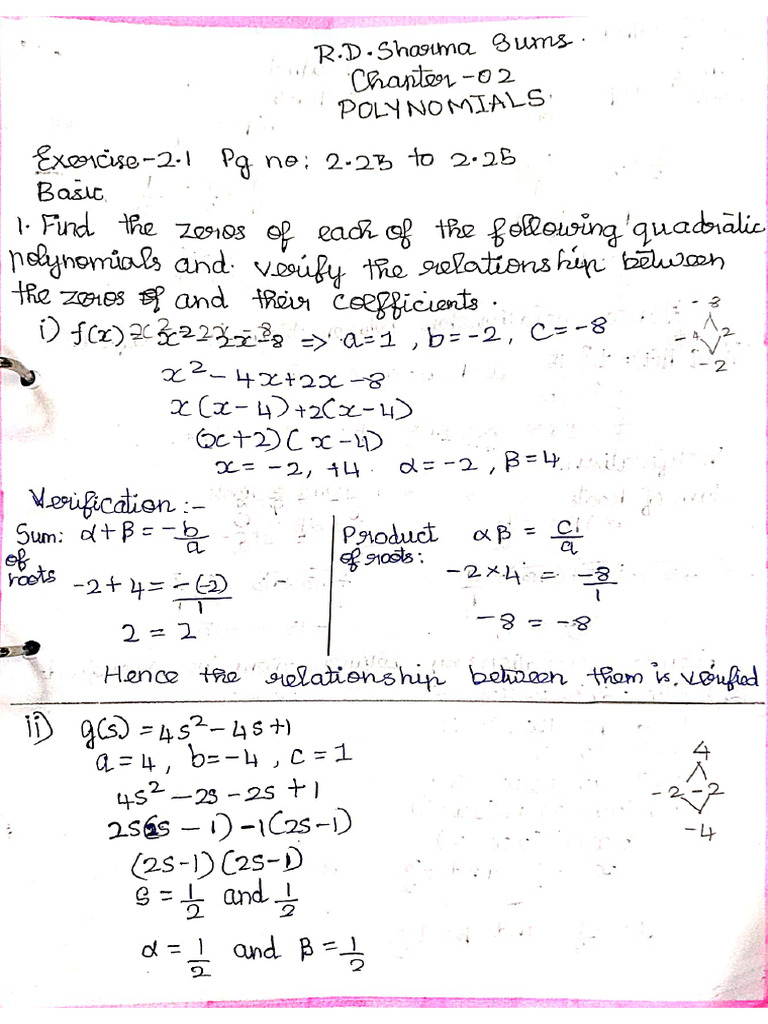 R.D. Sharma Sums.
Chapter-02
POLYNOMIALS.
Exercise-2.1 Pg no: 2.23 to 2.25
Basic
1. Find the zeros of each of the following quadratic
polynomials and verify the relationship between
the zeros and their coefficients.
i) f(x) = x² - 2x - 8 => a=1, b=-2, c=-8
-8
-4 2
-2
x² - 4x + 2x - 8
x(x-4)+2(x-4)
(x+2)(x-4)
x = -2, +4 α=-2, β=4
Verification:-
Sum: α+β = -b/a
of
roots
-2+4 = -(-2)/1
2 = 2
Product αβ = c/a
of roots:
-2×4 = -8/1
-8 = -8
Hence the relationship between them is verified
ii) g(s) = 4s²-4s+1
a=4, b=-4, c=1
4
-2 -2
-4
4s² - 2s - 2s + 1
2s(2s - 1) -1(2s-1)
(2s-1)(2s-1)
s = 1/2 and 1/2
α = 1/2 and β = 1/2